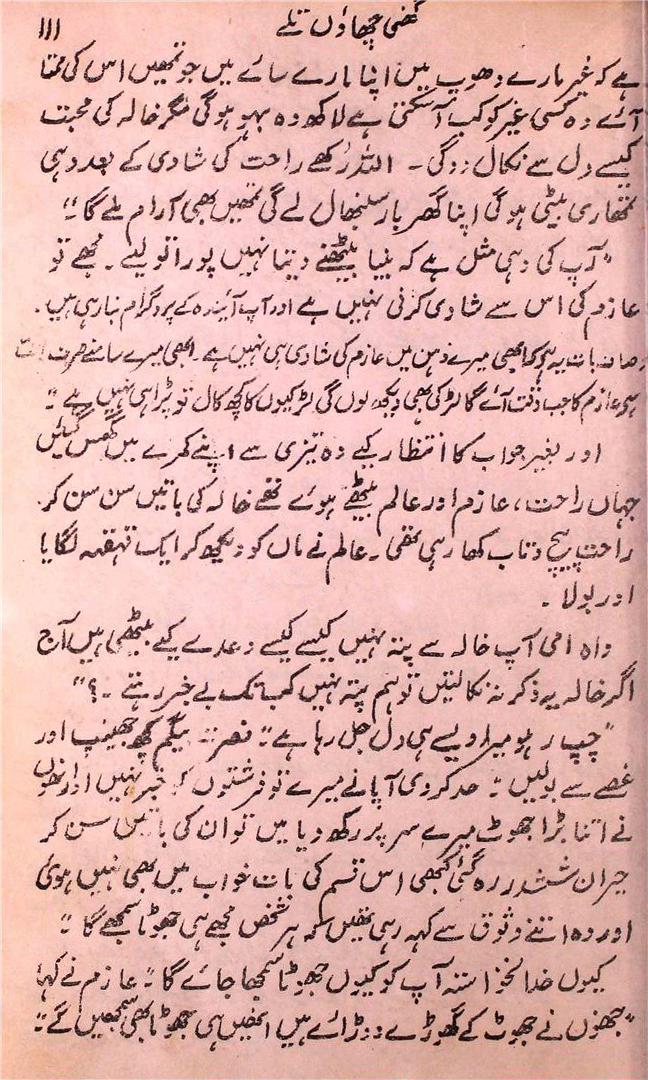 گھنی چھاؤں تلے
۱۱۱
ہے کہ غیر مارے دھوپ میں اپنا مارے سائے میں جو تمھیں اس کی ممتا
آئے وہ کسی غیر کو کب آسکتی ہے لاکھ وہ بہو ہوگی مگر خالہ کی محبت
کیسے دل سے نکال دوگی۔ اللہ رکھے راحت کی شادی کے بعد وہی
تمھاری بیٹی ہوگی اپنا گھر بار سنبھال لے گی تمھیں بھی آرام ملے گا"
"آپ کی وہی مثل ہے کہ بنیا بیٹھنے دیتا نہیں پورا تولیے۔ مجھے تو
عازم کی اس سے شادی کرنی نہیں ہے اور آپ آیندہ کے پروگرام بنا رہی ہیں۔
بات یہ ہے کہ ابھی میرے ذہن میں عازم کی شادی ہی نہیں ہے۔ ابھی میرے سامنے صرف
ہے عازم کا جب وقت آئے گا لڑکی بھی دیکھ لوں گی لڑکیوں کا کچھ کال تو پڑا ہی نہیں ہے"
اور بغیر جواب کا انتظار کیے وہ تیزی سے اپنے کمرے میں گھس گئیں
جہاں راحت، عازم اور عالم بیٹھے ہوئے تھے خالہ کی باتیں سن سن کر
راحت پیچ و تاب کھا رہی تھی۔ عالم نے ماں کو دیکھ کر ایک قہقہہ لگایا
اور بولا۔
واہ امی آپ خالہ سے پتہ نہیں کیسے کیسے وعدے کیے بیٹھی ہیں آج
اگر خالہ یہ ذکر نہ نکالتیں تو ہم پتہ نہیں کب تک بے خبر رہتے۔؟"
"چپ رہو میرا ویسے ہی دل جل رہا ہے" نصرت بیگم کچھ جھینپ اور
غصے سے بولیں" حد کردی آپا نے میرے تو فرشتوں کو خبر نہیں اور انھوں
نے اتنا بڑا جھوٹ میرے سر پر رکھ دیا میں تو ان کی باتیں سن کر
حیران ششدر رہ گئی کبھی اس قسم کی بات خواب میں بھی نہیں ہوئی
اور وہ اتنے وثوق سے کہہ رہی تھیں کہ ہر شخص مجھے ہی جھوٹا سمجھے گا"
کیوں خدانخواستہ آپ کو کیوں جھوٹا سمجھا جائے گا" عازم نے کہا
"جنھوں نے جھوٹ کے گھوڑے دوڑائے ہیں انھیں ہی جھوٹا بھی سمجھیں گے"